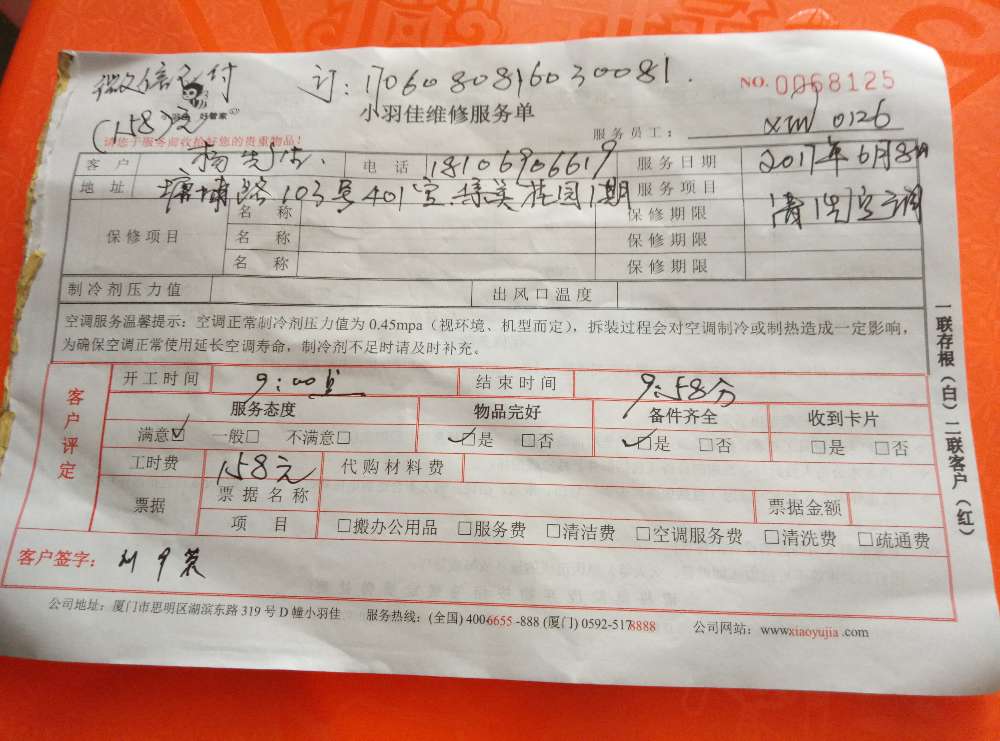 微信支付 订:1706080816030081.
NO.0068125
(158)元 好管家
小羽佳维修服务单
请您于服务前收拾好您的贵重物品!
服务员工: xm 0126
客户 杨先生. 电话 18106906619 服务日期 2017年6月8日
地址 塘埔路103号401室 禄美桂园1期 服务项目 清洗空调
保修项目 名称 保修期限
名称 保修期限
名称 保修期限
制冷剂压力值 出风口温度
空调服务温馨提示:空调正常制冷剂压力值为 0.45mpa(视环境、机型而定),拆装过程会对空调制冷或制热造成一定影响,
为确保空调正常使用延长空调寿命,制冷剂不足时请及时补充。
客户评定
开工时间 9:00 结束时间 9:58分
服务态度 物品完好 备件齐全 收到卡片
满意☑ 一般□ 不满意□ ☑是 □否 ☑是 □否 □是 □否
工时费 158元 代购材料费
票据 票据名称 票据金额
项目 □搬办公用品 □服务费 □清洁费 □空调服务费 □清洗费 □疏通费
客户签字:
公司地址:厦门市思明区湖滨东路 319 号 D 幢小羽佳 服务热线:(全国) 400-6655-888 (厦门) 0592-5178888 公司网站:www.xiaoyujia.com
一联存根(白) 二联客户(红)